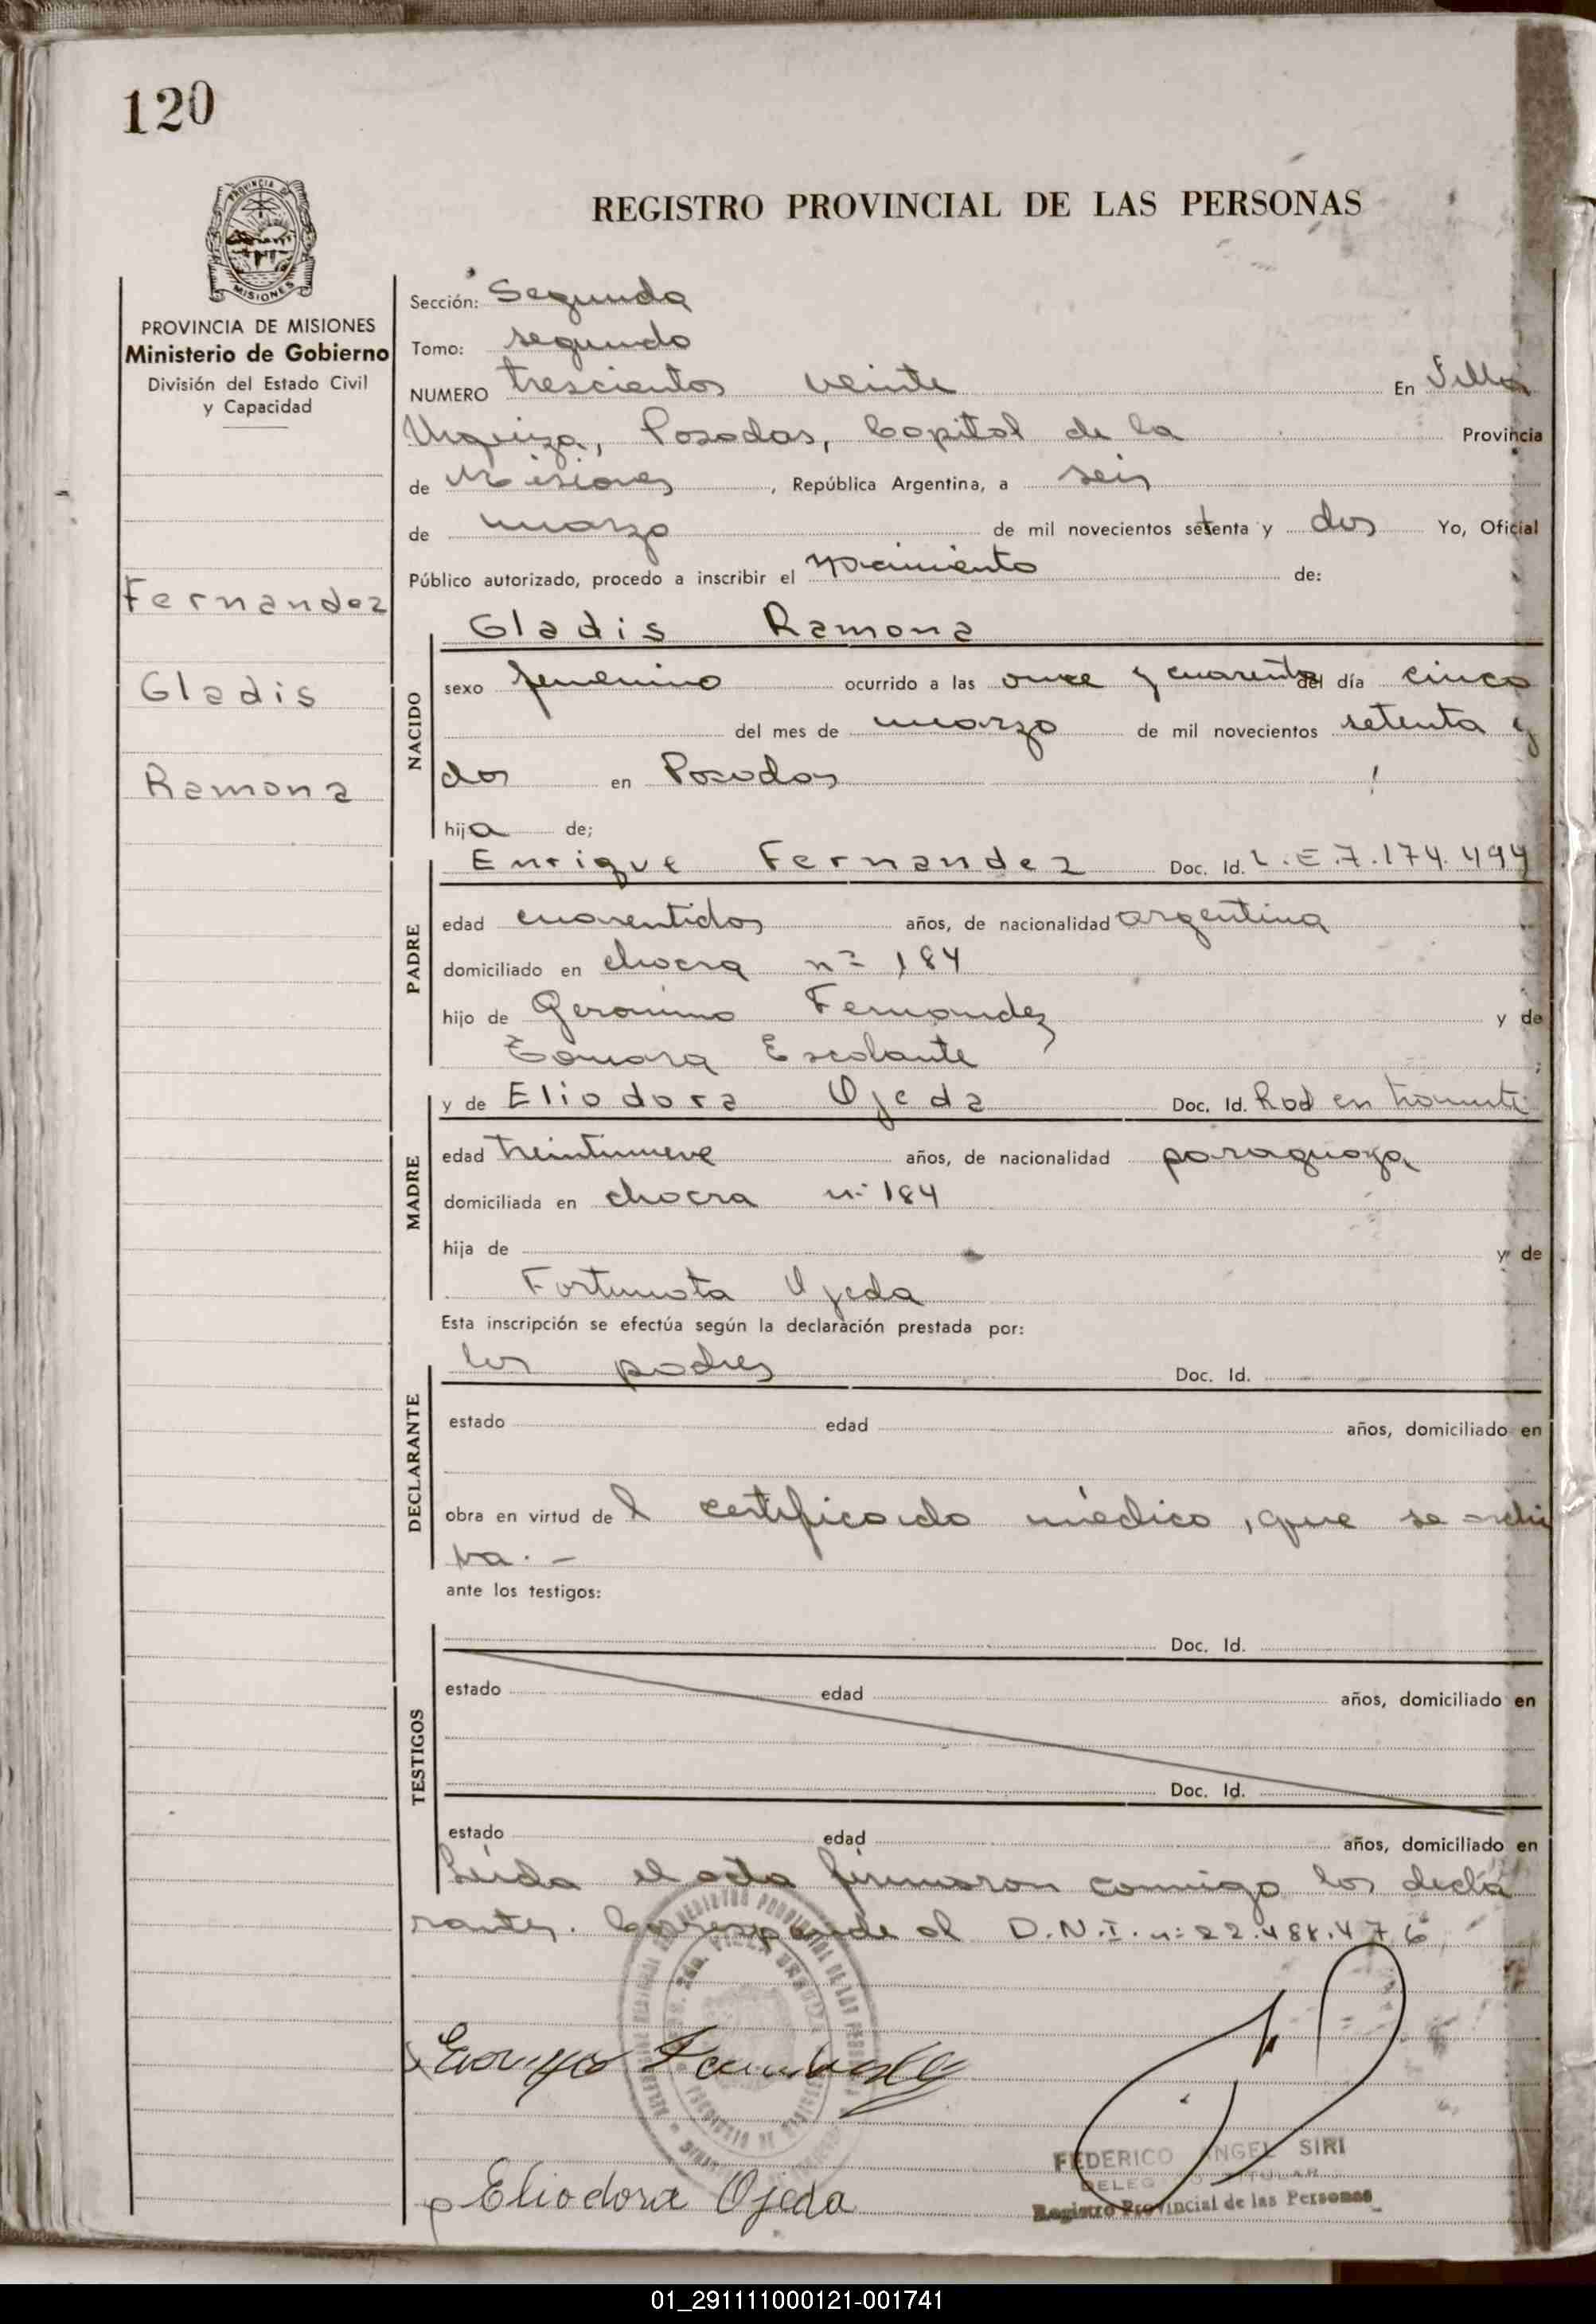 120
PROVINCIA DE
MISIONES
PROVINCIA DE MISIONES
Ministerio de Gobierno
División del Estado Civil
y Capacidad
Fernandez
Gladis
Ramona
REGISTRO PROVINCIAL DE LAS PERSONAS
Sección: Segunda
Tomo: segundo
NUMERO trescientos veinte En Villa
Urquiza, Posadas, Capital de la Provincia
de Misiones, República Argentina, a seis
de marzo de mil novecientos setenta y dos Yo, Oficial
Público autorizado, procedo a inscribir el nacimiento de:
Gladis Ramona
NACIDO
sexo femenino ocurrido a las once y cuarenta del día cinco
del mes de marzo de mil novecientos setenta y
dos en Posadas
hija de;
Enrique Fernandez Doc. Id. L.E.7.174.494
PADRE
edad cuarentidos años, de nacionalidad argentina
domiciliado en chacra nº 184
hijo de Geronimo Fernandez y de
Tomasa Escalante ;
y de Eliodora Ojeda Doc. Id. Rad en tramite
MADRE
edad treintinueve años, de nacionalidad paraguaya
domiciliada en chacra nº 184
hija de y de
Fortunata Ojeda
Esta inscripción se efectúa según la declaración prestada por:
los padres Doc. Id.
DECLARANTE
estado edad años, domiciliado en
obra en virtud del certificado médico, que se archi
va. -
ante los testigos:
Doc. Id.
TESTIGOS
estado edad años, domiciliado en
Doc. Id.
estado edad años, domiciliado en
Leida el acta firmaron conmigo los decla
rantes. Corresponde al D.N.I. nº 22.488.476
Eliodora Ojeda
FEDERICO ANGEL SIRI
DELEGADO TITULAR
Registro Provincial de las Personas
01_291111000121-001741